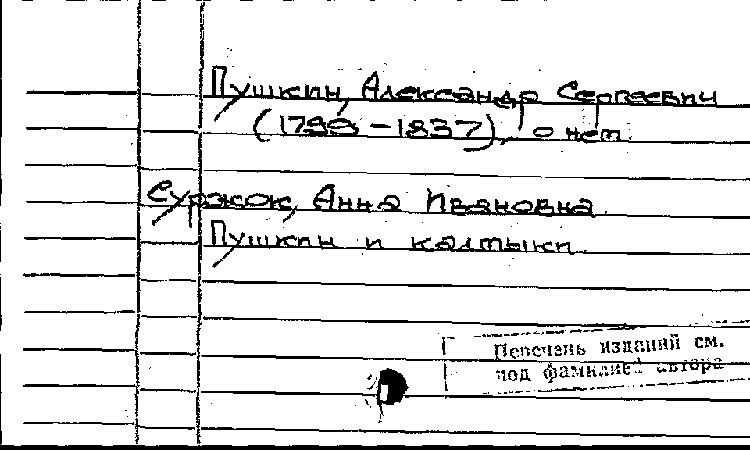 Пушкин, Александр Сергеевич
(1799-1837), о нем.
Суржок, Анна Ивановна.
Пушкин и калмыки.
Перечень изданий см.
под фамилией автора